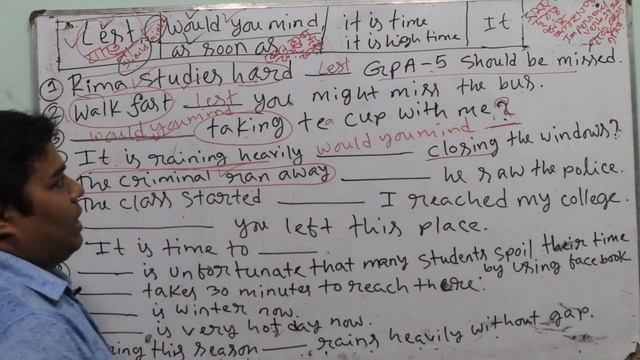 Lest would you mind, it is time It
as soon as it is high time
① Rima studies hard lest GPA-5 should be missed.
② Walk fast lest you might miss the bus.
would you mind taking tea a cup with me?
It is raining heavily would you mind closing the windows?
The criminal ran away ______ he saw the police.
The class started ______ I reached my college.
______ you left this place.
It is time to ____.
____ is unfortunate that many students spoil their time by using facebook
____ takes 30 minutes to reach there.
is winter now.
____ is very hot day now.
ing this season ____ rains heavily without gap.